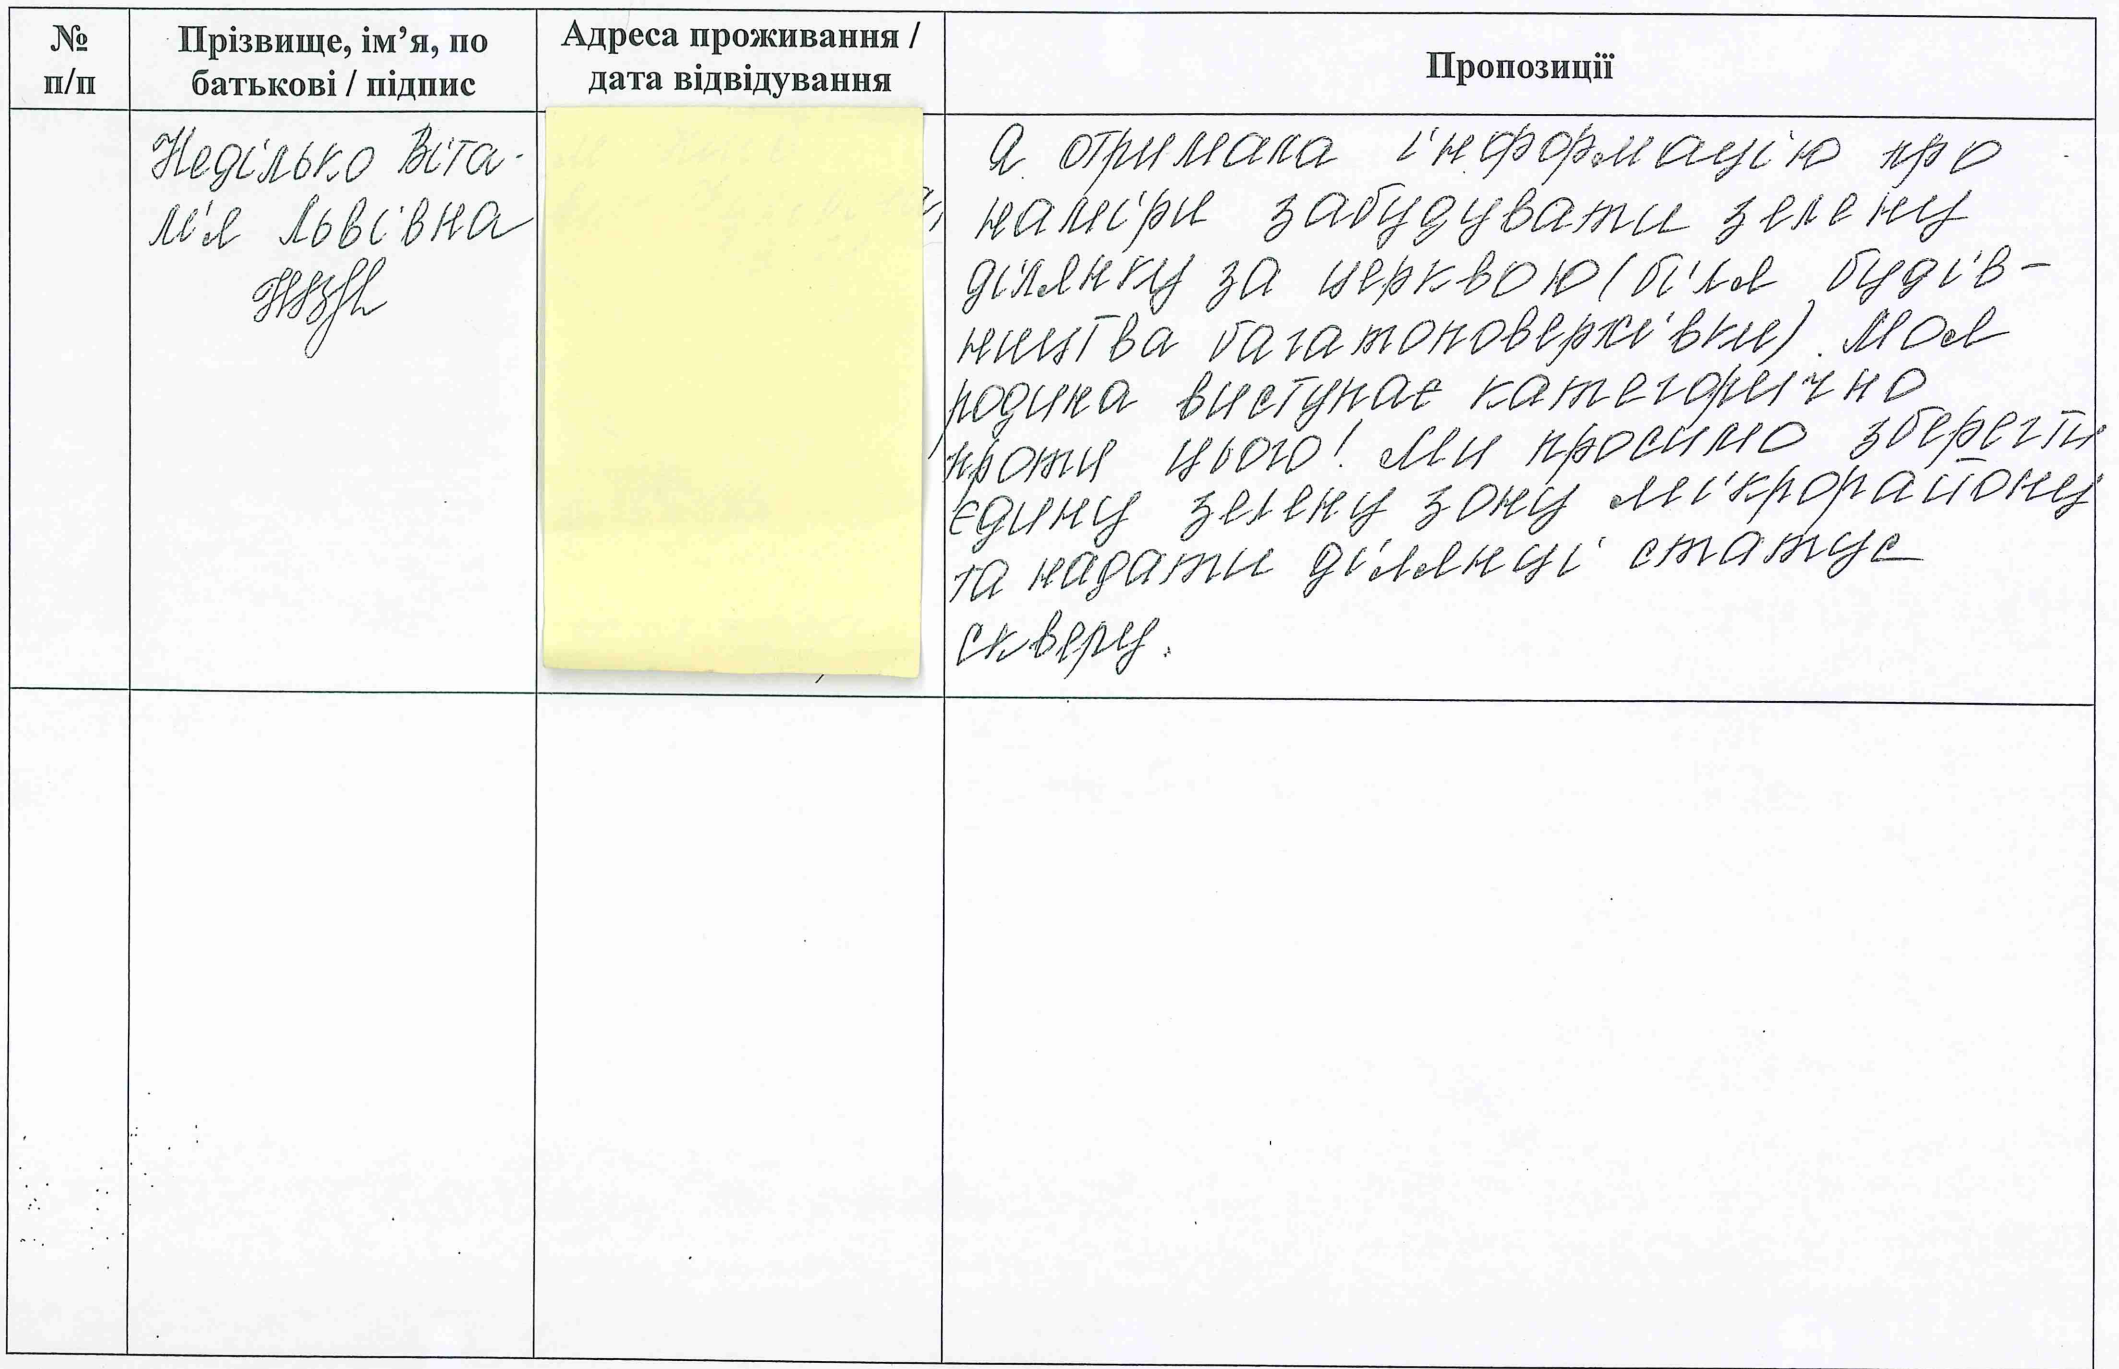 №
п/п
Прізвище, ім’я, по
батькові / підпис
Адреса проживання /
дата відвідування
Пропозиції
Неділько Віта-
лія Львівна
Я отримала інформацію про
наміри забудувати зелену
ділянку за церквою (біля будів-
ництва багатоповерхівки). Моя
родина виступає категорично
проти цього! Ми просимо зберегти
єдину зелену зону мікрорайону
та надати ділянці статус
скверу.